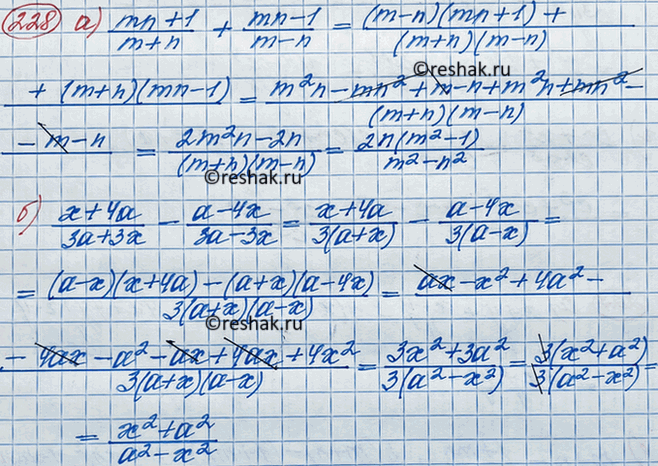 228 а) (mn+1)/(m+n) + (mn-1)/(m-n) = ((m-n)(mn+1)+)/((m+n)(m-n))
©reshak.ru
(+(m+n)(mn-1))/ = (m²n-mn²+m-n+m²n+mn²-)/((m+n)(m-n))
(-m-n)/ = (2m²n-2n)/((m+n)(m-n)) = (2n(m²-1))/(m²-n²)
©reshak.ru
б) (x+4a)/(3a+3x) - (a-4x)/(3a-3x) = (x+4a)/(3(a+x)) - (a-4x)/(3(a-x)) =
= ((a-x)(x+4a)-(a+x)(a-4x))/(3(a+x)(a-x)) = (ax-x²+4a²-)/
©reshak.ru
(-4ax-a²-ax+4ax+4x²)/(3(a+x)(a-x)) = (3x²+3a²)/(3(a²-x²)) = (3(x²+a²))/(3(a²-x²)) =
= (x²+a²)/(a²-x²)